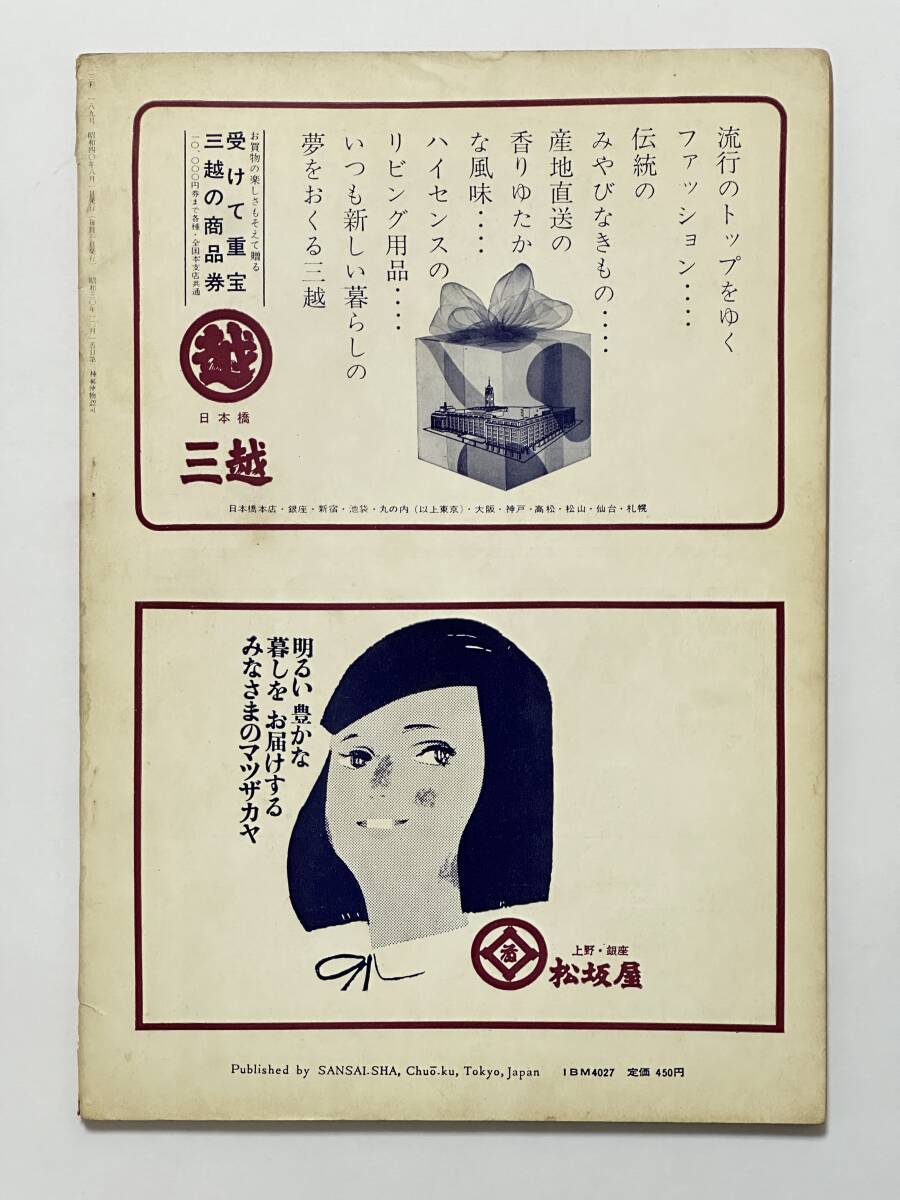 流行のトップをゆく
ファッション‥‥
伝統の
みやびなきもの‥‥
産地直送の
香りゆたか
な風味‥‥
ハイセンスの
リビング用品‥‥
いつも新しい暮らしの
夢をおくる三越
お買物の楽しさもそえて贈る
受けて重宝
三越の商品券
一〇,〇〇〇円券まで各種・全国本支店共通
越
日本橋
三越
日本橋本店・銀座・新宿・池袋・丸の内(以上東京)・大阪・神戸・高松・松山・仙台・札幌
明るい 豊かな
暮しを お届けする
みなさまのマツザカヤ
上野・銀座
松坂屋
Published by SANSAI-SHA, Chuō-ku, Tokyo, Japan IBM4027 定価 450円
一八九号 昭和四〇年八月一日発行